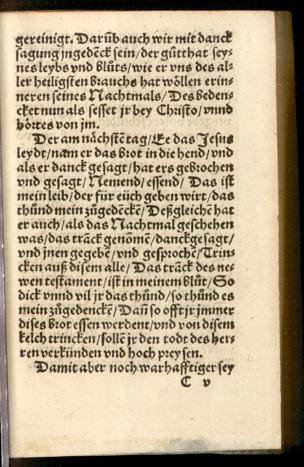 gereinigt. Darüb auch wir mit danck
sagung jngedēck sein/der gůtthat sey-
nes leybs vnd blůts/wie er vns des al-
ler heiligsten brauchs hat wöllen erin-
neren seines Nachtmals/Des beden-
cket nun als sesset jr bey Christo/vnnd
hörtes von jm.
Der am nächstē tag/Ee das Jesus
leydt/nam er das brot in die hend/vnd
als er danck gesagt/hat ers gebrochen
vnd gesagt/Nemend/essend/Das ist
mein leib/der für eüch geben wirt/das
thůnd mein zůgedēckē/Deßgleichē hat
er auch/als das Nachtmal geschehen
was/das trāck genōmē/danckgesagt/
vnd jnen gegebē/vnd gesprochē/Trin-
cken auß disem alle/Das trāck des ne-
wen testament/ist in meinem blůt/So
dick vnnd vil jr das thůnd/so thůnd es
mein zůgedenckē/Dañ so offt jr jmmer
dises brot essen werdent/vnd von disem
kelch trincken/sollē jr den todt des her-
ren verkünden vnd hoch preysen.
Damit aber noch warhafftiger sey
C v